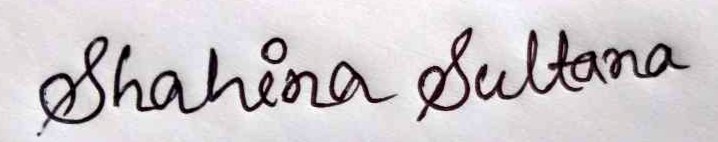 Shahina Sultana